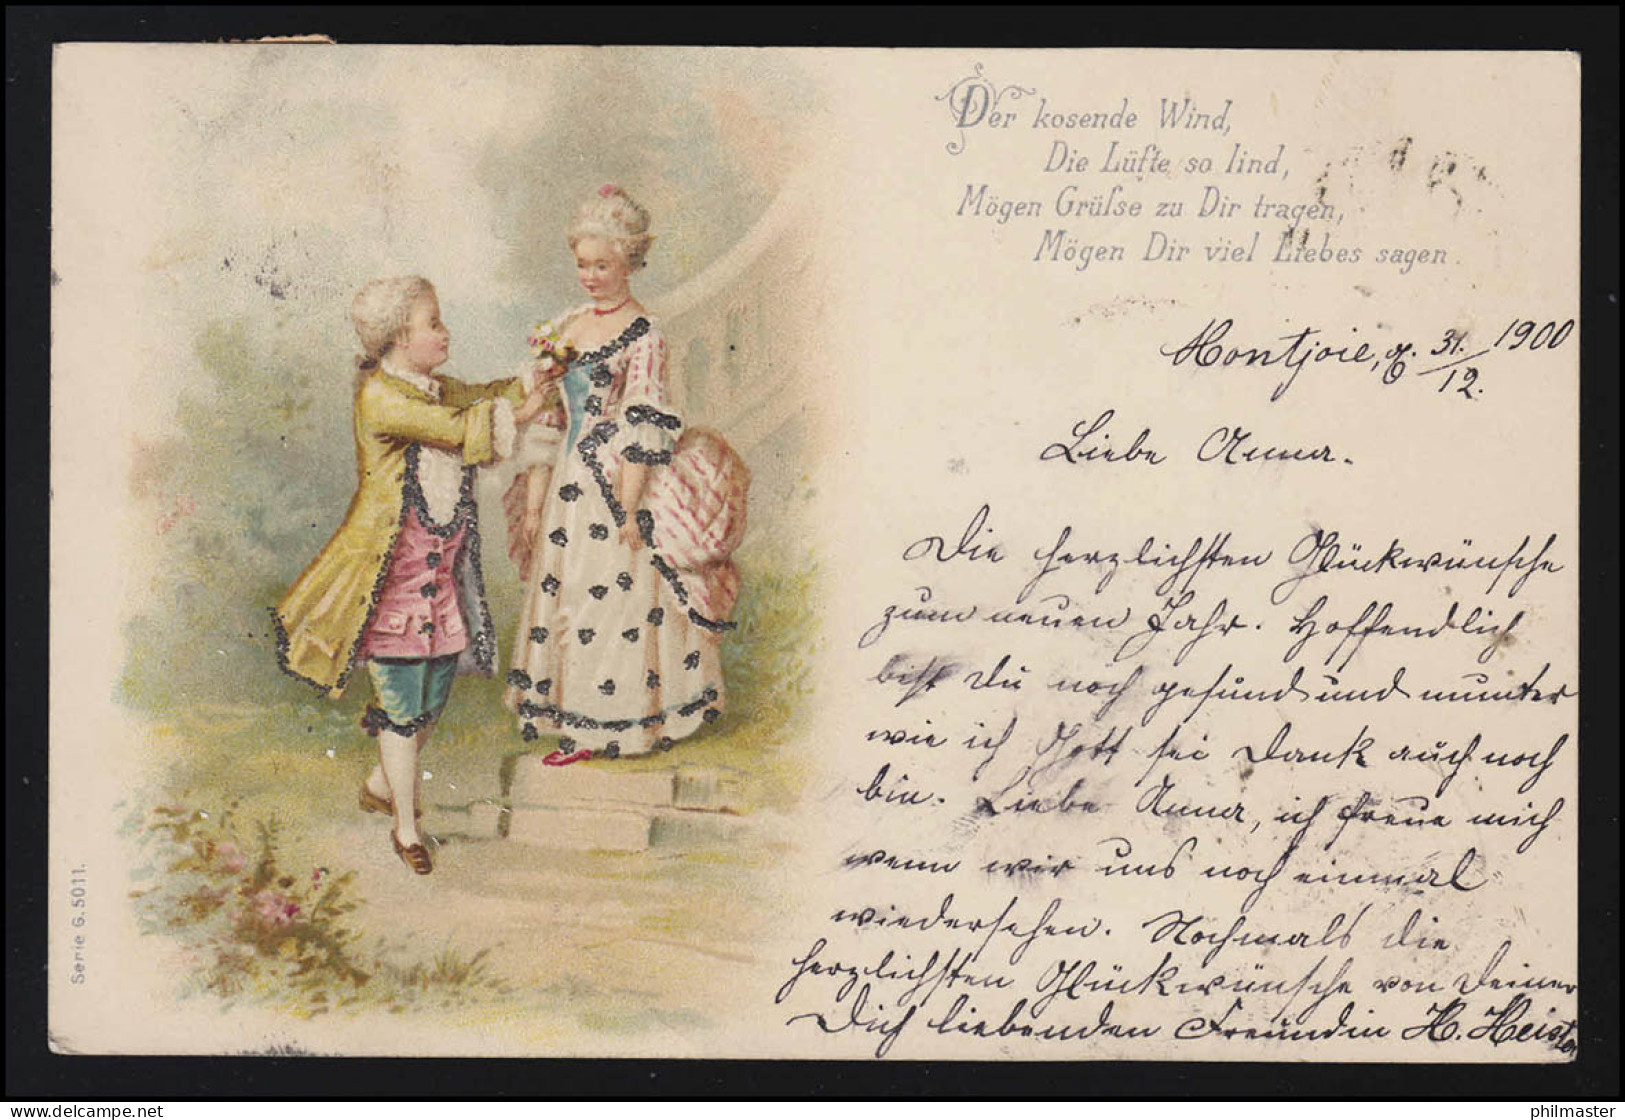 Der kosende Wind,
Die Lüfte so lind,
Mögen Grüſse zu Dir tragen,
Mögen Dir viel Liebes sagen.
Montjoie, 31./12. 1900
Liebe Anna.
Die herzlichsten Glückwünsche
zum neuen Jahr. Hoffendlich
bist Du noch gesund und munter
wie ich Gott sei Dank auch noch
bin. Liebe Anna, ich freue mich
wenn wir uns noch einmal
wiedersehen. Nochmals die
herzlichsten Glückwünsche von Deiner
Dich liebenden Freundin H.
Serie G. 5011.
philmaster